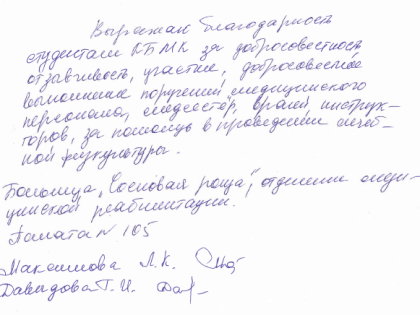 Выражаю благодарность
студентам КБМК за добросовестность
отзывчивость, участие, добросовестное
выполнение поручений медицинского
персонала, медсестёр, врачей, инструк-
торов, за помощь в проведении лечеб-
ной физкультуры.
Больница „Сосновая роща", отделение меди-
цинской реабилитации.
Палата № 105
Максимова Л.К.
Давыдова Т.И.